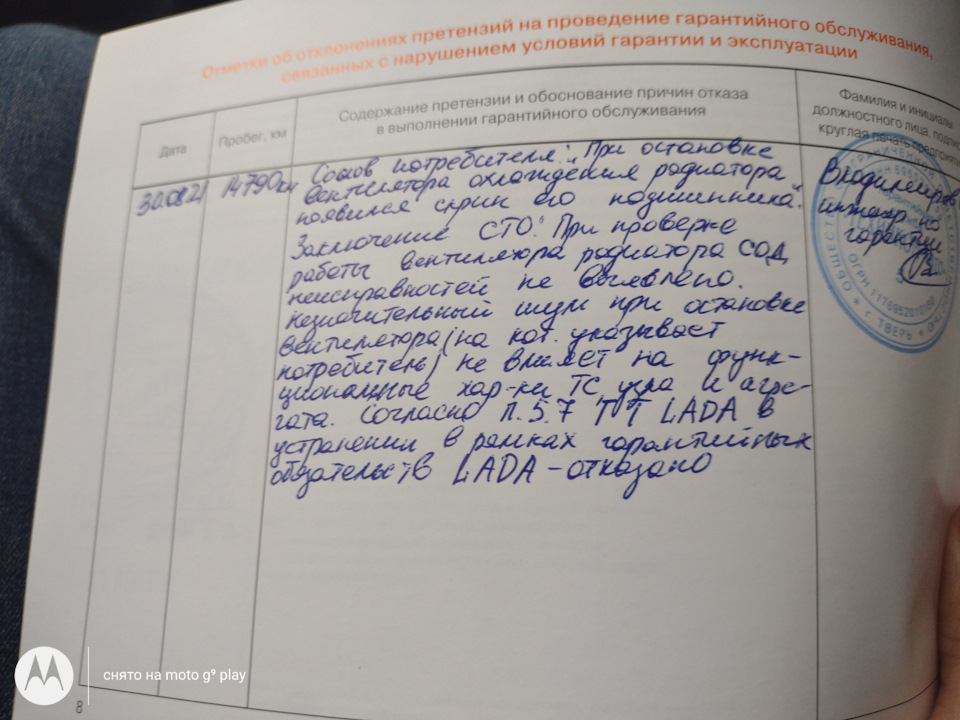 Отметки об отклонениях претензий на проведение гарантийного обслуживания,
связанных с нарушением условий гарантии и эксплуатации
Дата
Пробег, км
Содержание претензии и обоснование причин отказа
в выполнении гарантийного обслуживания
Фамилия и инициалы
должностного лица,
круглая печать
30.08.21
14790км
Со слов потребителя: "При остановке
вентилятора охлаждения радиатора
появился скрип его подшипника".
Заключение СТО: При проверке
работы вентилятора радиатора СОД
неисправностей не выявлено.
Незначительный шум при остановке
вентилятора (на кот. указывает
потребитель) не влияет на функ-
циональные хар-ки ТС, узла и агре-
гата. Согласно п. 5.7 ГТ LADA в
устранении в рамках гарантийных
обязательств LADA - отказано
Владимиров
инженер по
гарантии
г. ТВЕРЬ
снято на moto g⁹ play
8